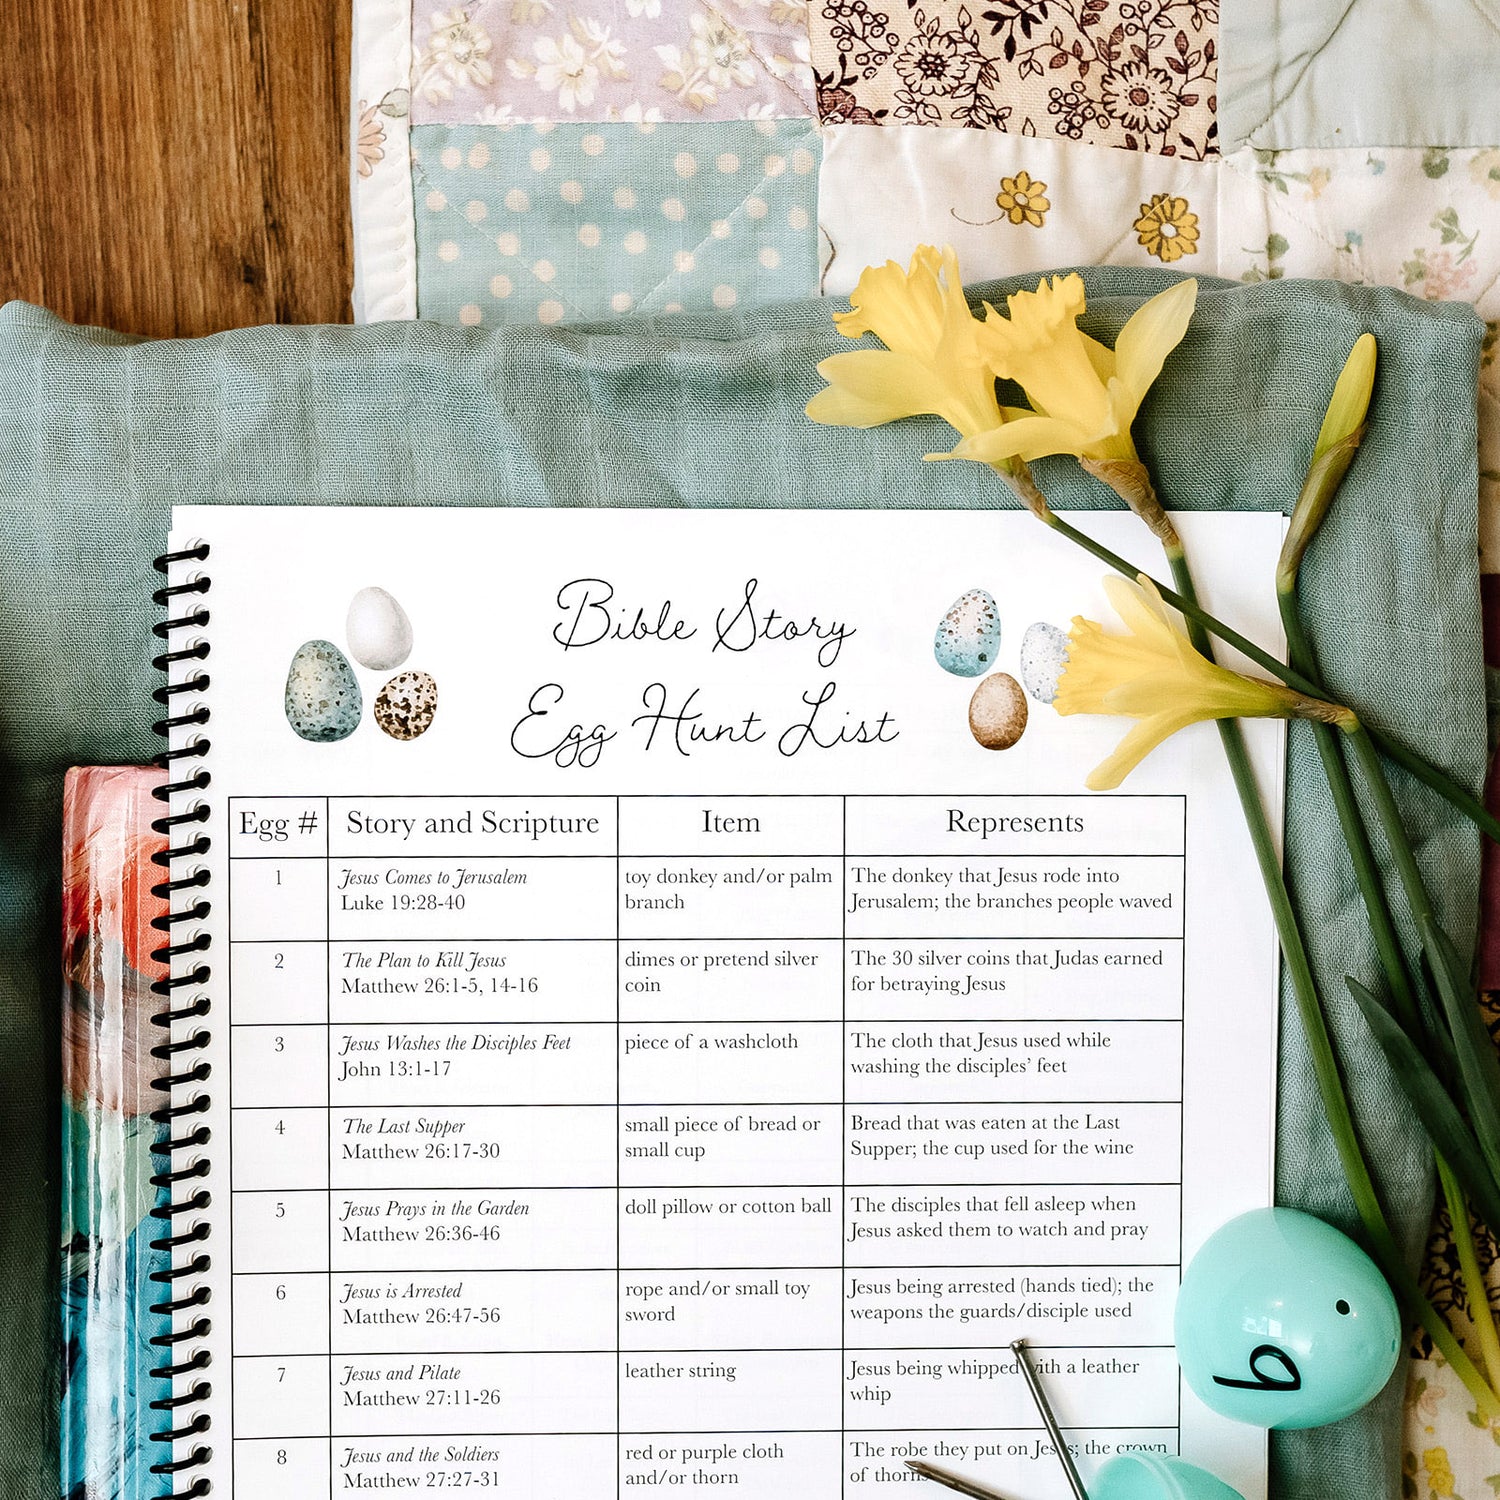 Bible Story
Egg Hunt List
Egg # Story and Scripture Item Represents
1 Jesus Comes to Jerusalem toy donkey and/or palm The donkey that Jesus rode into
Luke 19:28-40 branch Jerusalem; the branches people waved
2 The Plan to Kill Jesus dimes or pretend silver The 30 silver coins that Judas earned
Matthew 26:1-5, 14-16 coin for betraying Jesus
3 Jesus Washes the Disciples Feet piece of a washcloth The cloth that Jesus used while
John 13:1-17 washing the disciples' feet
4 The Last Supper small piece of bread or Bread that was eaten at the Last
Matthew 26:17-30 small cup Supper; the cup used for the wine
5 Jesus Prays in the Garden doll pillow or cotton ball The disciples that fell asleep when
Matthew 26:36-46 Jesus asked them to watch and pray
6 Jesus is Arrested rope and/or small toy Jesus being arrested (hands tied); the
Matthew 26:47-56 sword weapons the guards/disciple used
7 Jesus and Pilate leather string Jesus being whipped with a leather
Matthew 27:11-26 whip
8 Jesus and the Soldiers red or purple cloth The robe they put on Jesus; the crown
Matthew 27:27-31 and/or thorn of thorns
9